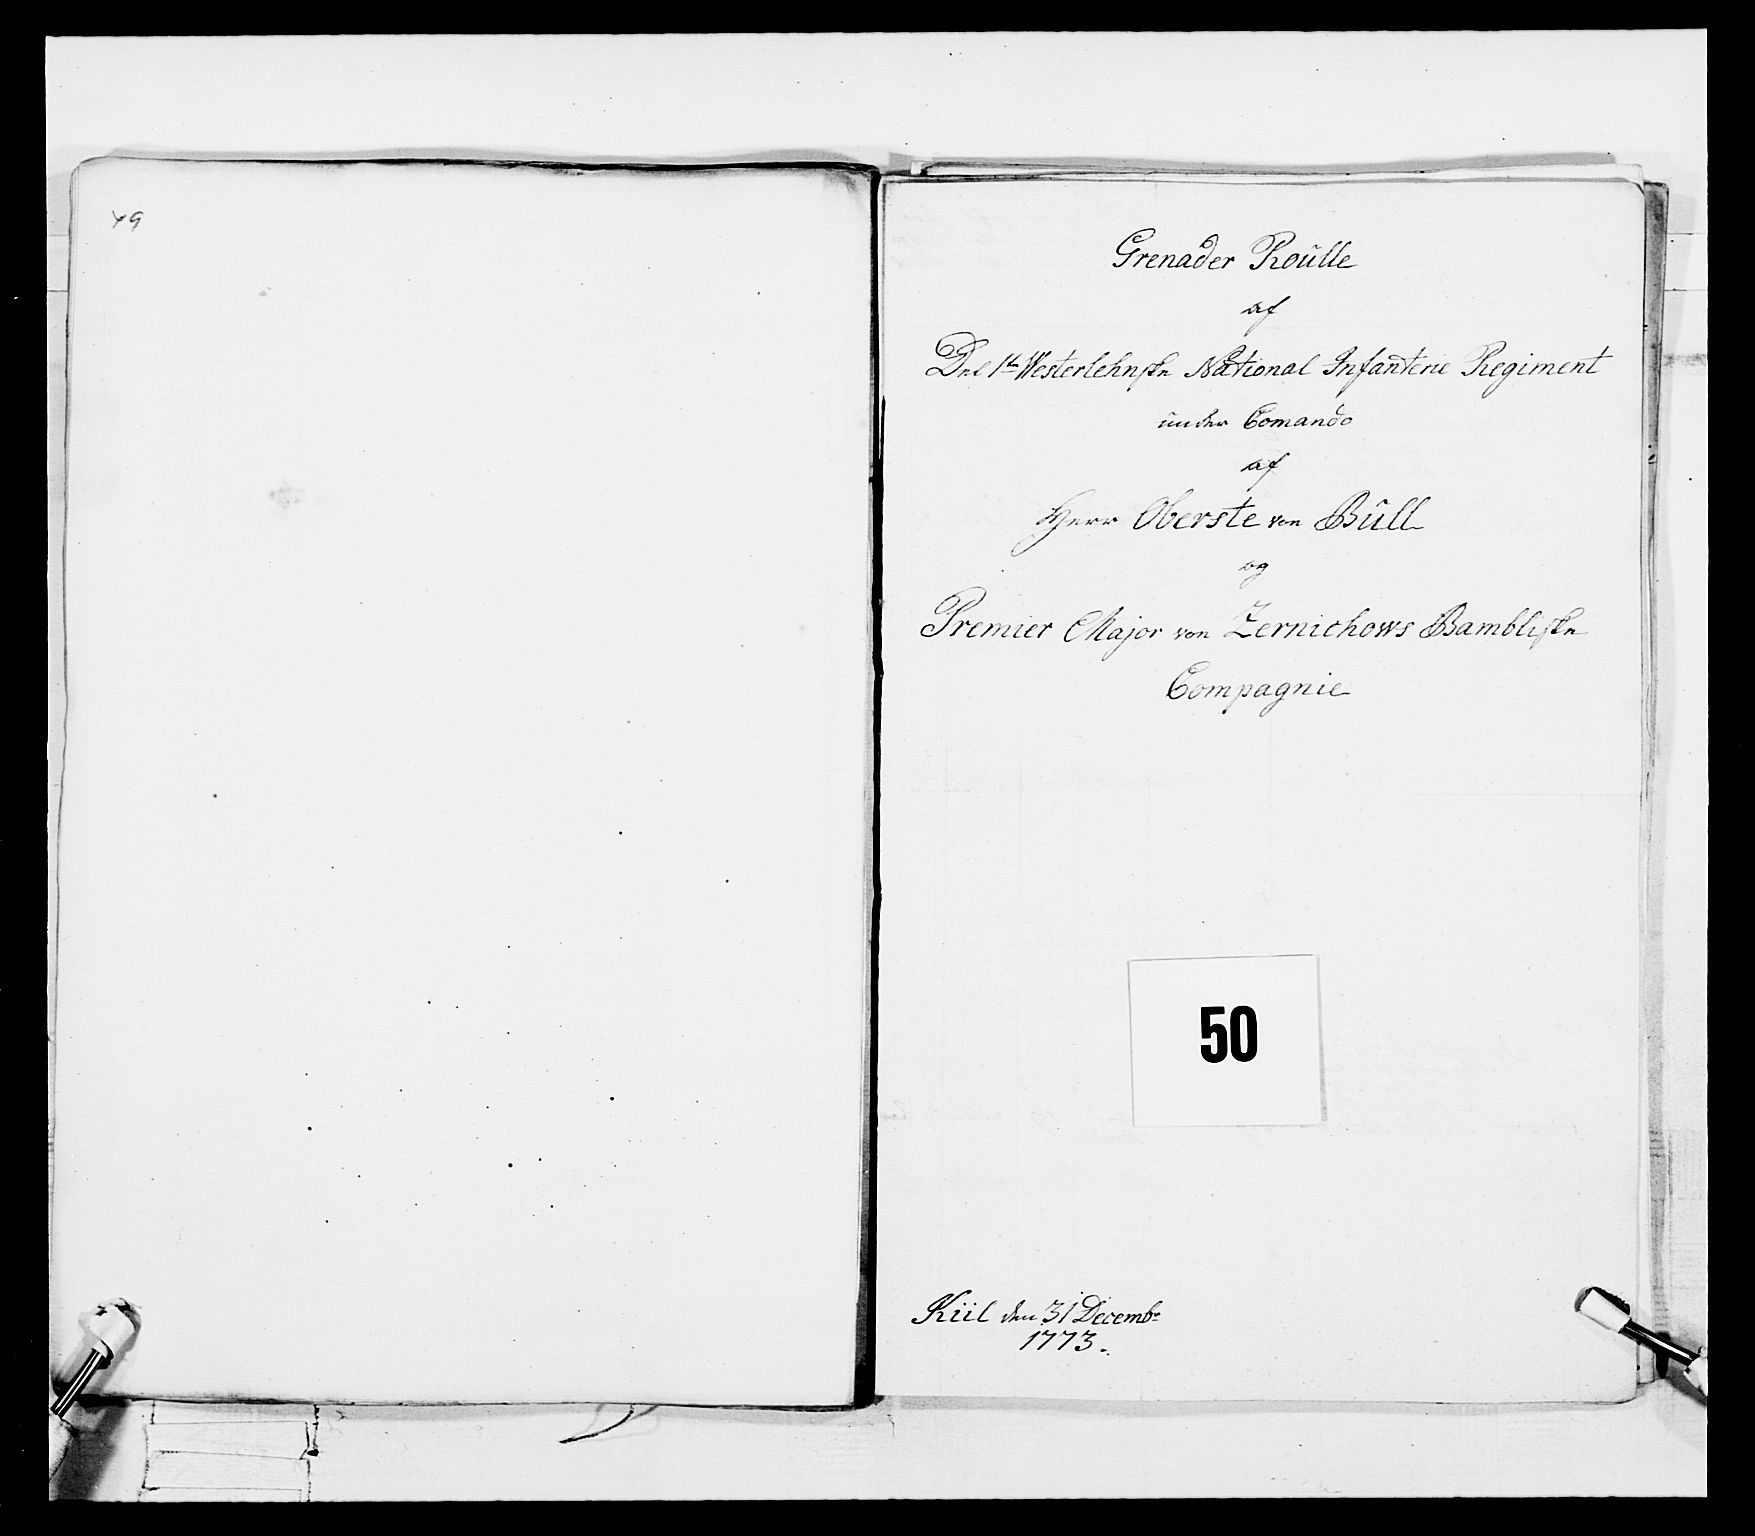 49
Grenader Roûlle
af
Det 1te Westerlehnske National Infanterie Regiment
ûnder Comando
af
Herr Oberste von Bûll
og
Premier Major von Zernichows Bambliske
Compagnie
50
Kiil den 31 Decembr
1773.